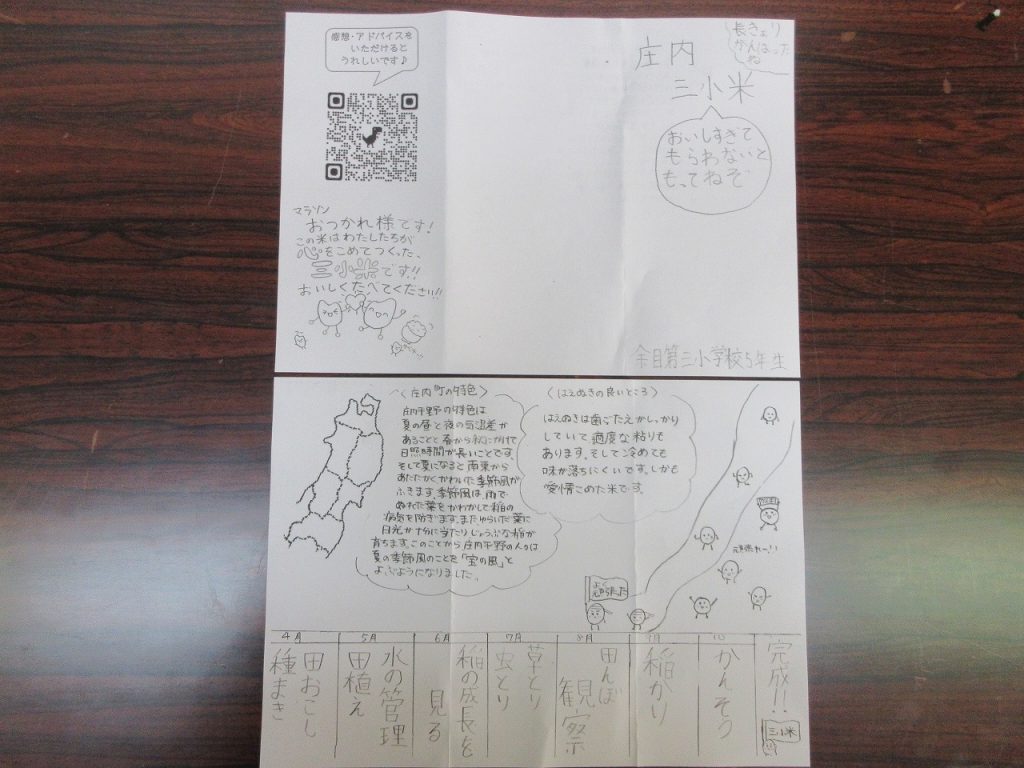 感想・アドバイスを
いただけると
うれしいです♪
マラソン
おつかれ様です!
この米はわたしたちが
心をこめてつくった、
三小米です!!
おいしくたべてください!!
長きょり
がんばった
ね
庄内
三小米
おいしすぎて
もらわないと
もってねぞ
余目第三小学校5年生
〈庄内町の特色〉
庄内平野の特色は
夏の昼と夜の気温差が
あることと春から秋にかけて
日照時間が長いことです。
そして夏になると南東から
あたたかくかわいた季節風が
ふきます。季節風は、雨で
ぬれた葉をかわかして稲の
病気を防ぎます。またゆらいだ葉に
日光が十分に当たりじょうぶな稲が
育ちます。このことから庄内平野の人々は
夏の季節風のことを「宝の風」と
よぶようになりました。
〈はえぬきの良いところ〉
はえぬきは歯ごたえがしっかり
していて適度な粘りも
あります。そして冷めても
味が落ちにくいです。しかも
愛情こめた米です。
頑張れー!!
4月
田おこし
種まき
5月
水の管理
田植え
6月
稲の成長を
見る
7月
草とり
虫とり
8月
田んぼ
観察
9月
稲かり
10
かんそう
完成!!
三小米